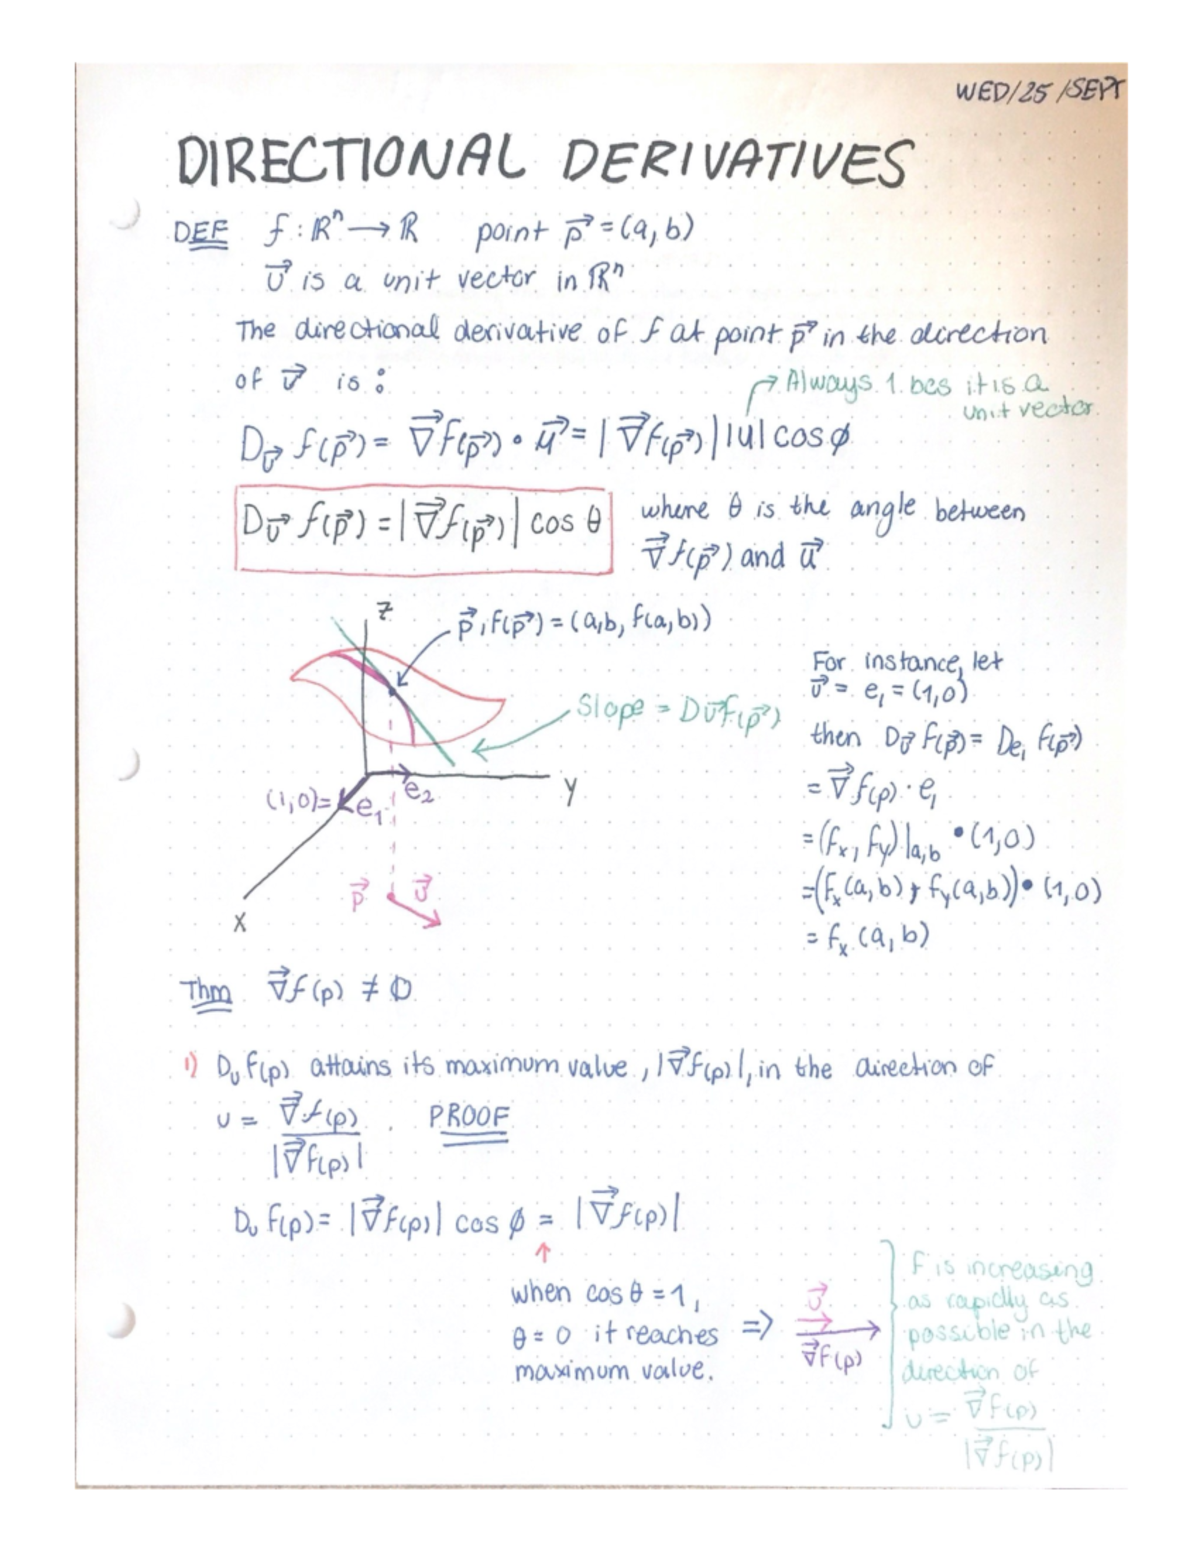 WED/25/SEPT
DIRECTIONAL DERIVATIVES
DEF f : ℝⁿ → ℝ point p⃗ = (a, b)
u⃗ is a unit vector in ℝⁿ
The directional derivative of f at point p⃗ in the direction
of u⃗ is :
→ Always 1 bcs it is a
unit vector
D_u⃗ f(p⃗) = ∇⃗f(p⃗) • u⃗ = |∇⃗f(p⃗)| |u| cos ϕ
D_u⃗ f(p⃗) = |∇⃗f(p⃗)| cos θ
where θ is the angle between
∇⃗f(p⃗) and u⃗
z
p⃗, f(p⃗) = (a,b, f(a,b))
Slope = D_u⃗ f(p⃗)
y
(1,0) = e₁
e₂
p⃗ u⃗
x
For instance, let
u⃗ = e₁ = (1,0)
then D_u⃗ f(p⃗) = D_e₁ f(p⃗)
= ∇⃗f(p) · e₁
= (fₓ, f_y)|a,b • (1,0)
= (fₓ(a,b), f_y(a,b)) • (1,0)
= fₓ(a, b)
Thm ∇⃗f(p) ≠ 0
1) D_u f(p) attains its maximum value, |∇⃗f(p)|, in the direction of
u = ∇⃗f(p) / |∇⃗f(p)| . PROOF
D_u f(p) = |∇⃗f(p)| cos ϕ = |∇⃗f(p)|
↑
when cos θ = 1,
θ = 0 it reaches
maximum value.
⇒ u⃗
∇⃗f(p)
F is increasing
as rapidly as
possible in the
direction of
u = ∇⃗f(p) / |∇⃗f(p)|